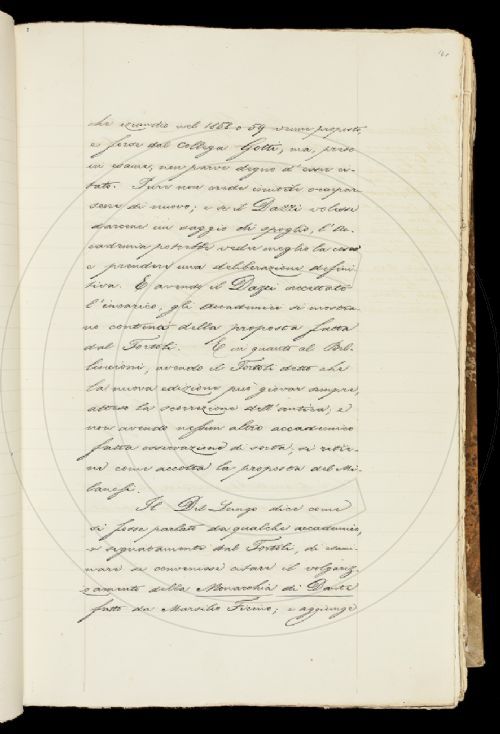 che eziandio nel 1858 o 59 venne proposto,
e forse dal Collega Gotti, ma, preso
in esame, non parve degno d'esser ci-
tato. Pure non crede inutile occupar-
sene di nuovo; e se il Dazzi volesse
darcene un saggio di spoglio, l'Ac-
cademia potrebbe veder meglio la cosa
e prendere una deliberazione defini-
tiva. E avendo il Dazzi accettato
l'incarico, gli Accademici si mostra-
no contenti della proposta fatta
dal Tortoli. E in quanto al Bel-
lincioni, avendo il Tortoli detto che
la nuova edizione può giovar sempre,
attesa la scorrezione dell'antica, e
non avendo nessun altro accademico
fatta osservazione di sorta, si ritie-
ne come accolta la proposta del Mi-
lanesi.
Il Del Lungo dice come
si fosse parlato da qualche accademico,
e segnatamente dal Tortoli, di esami-
nare se convenisse citare il volgariz-
zamento della Monarchia di Dante
fatto da Marsilio Ficino; e aggiunge